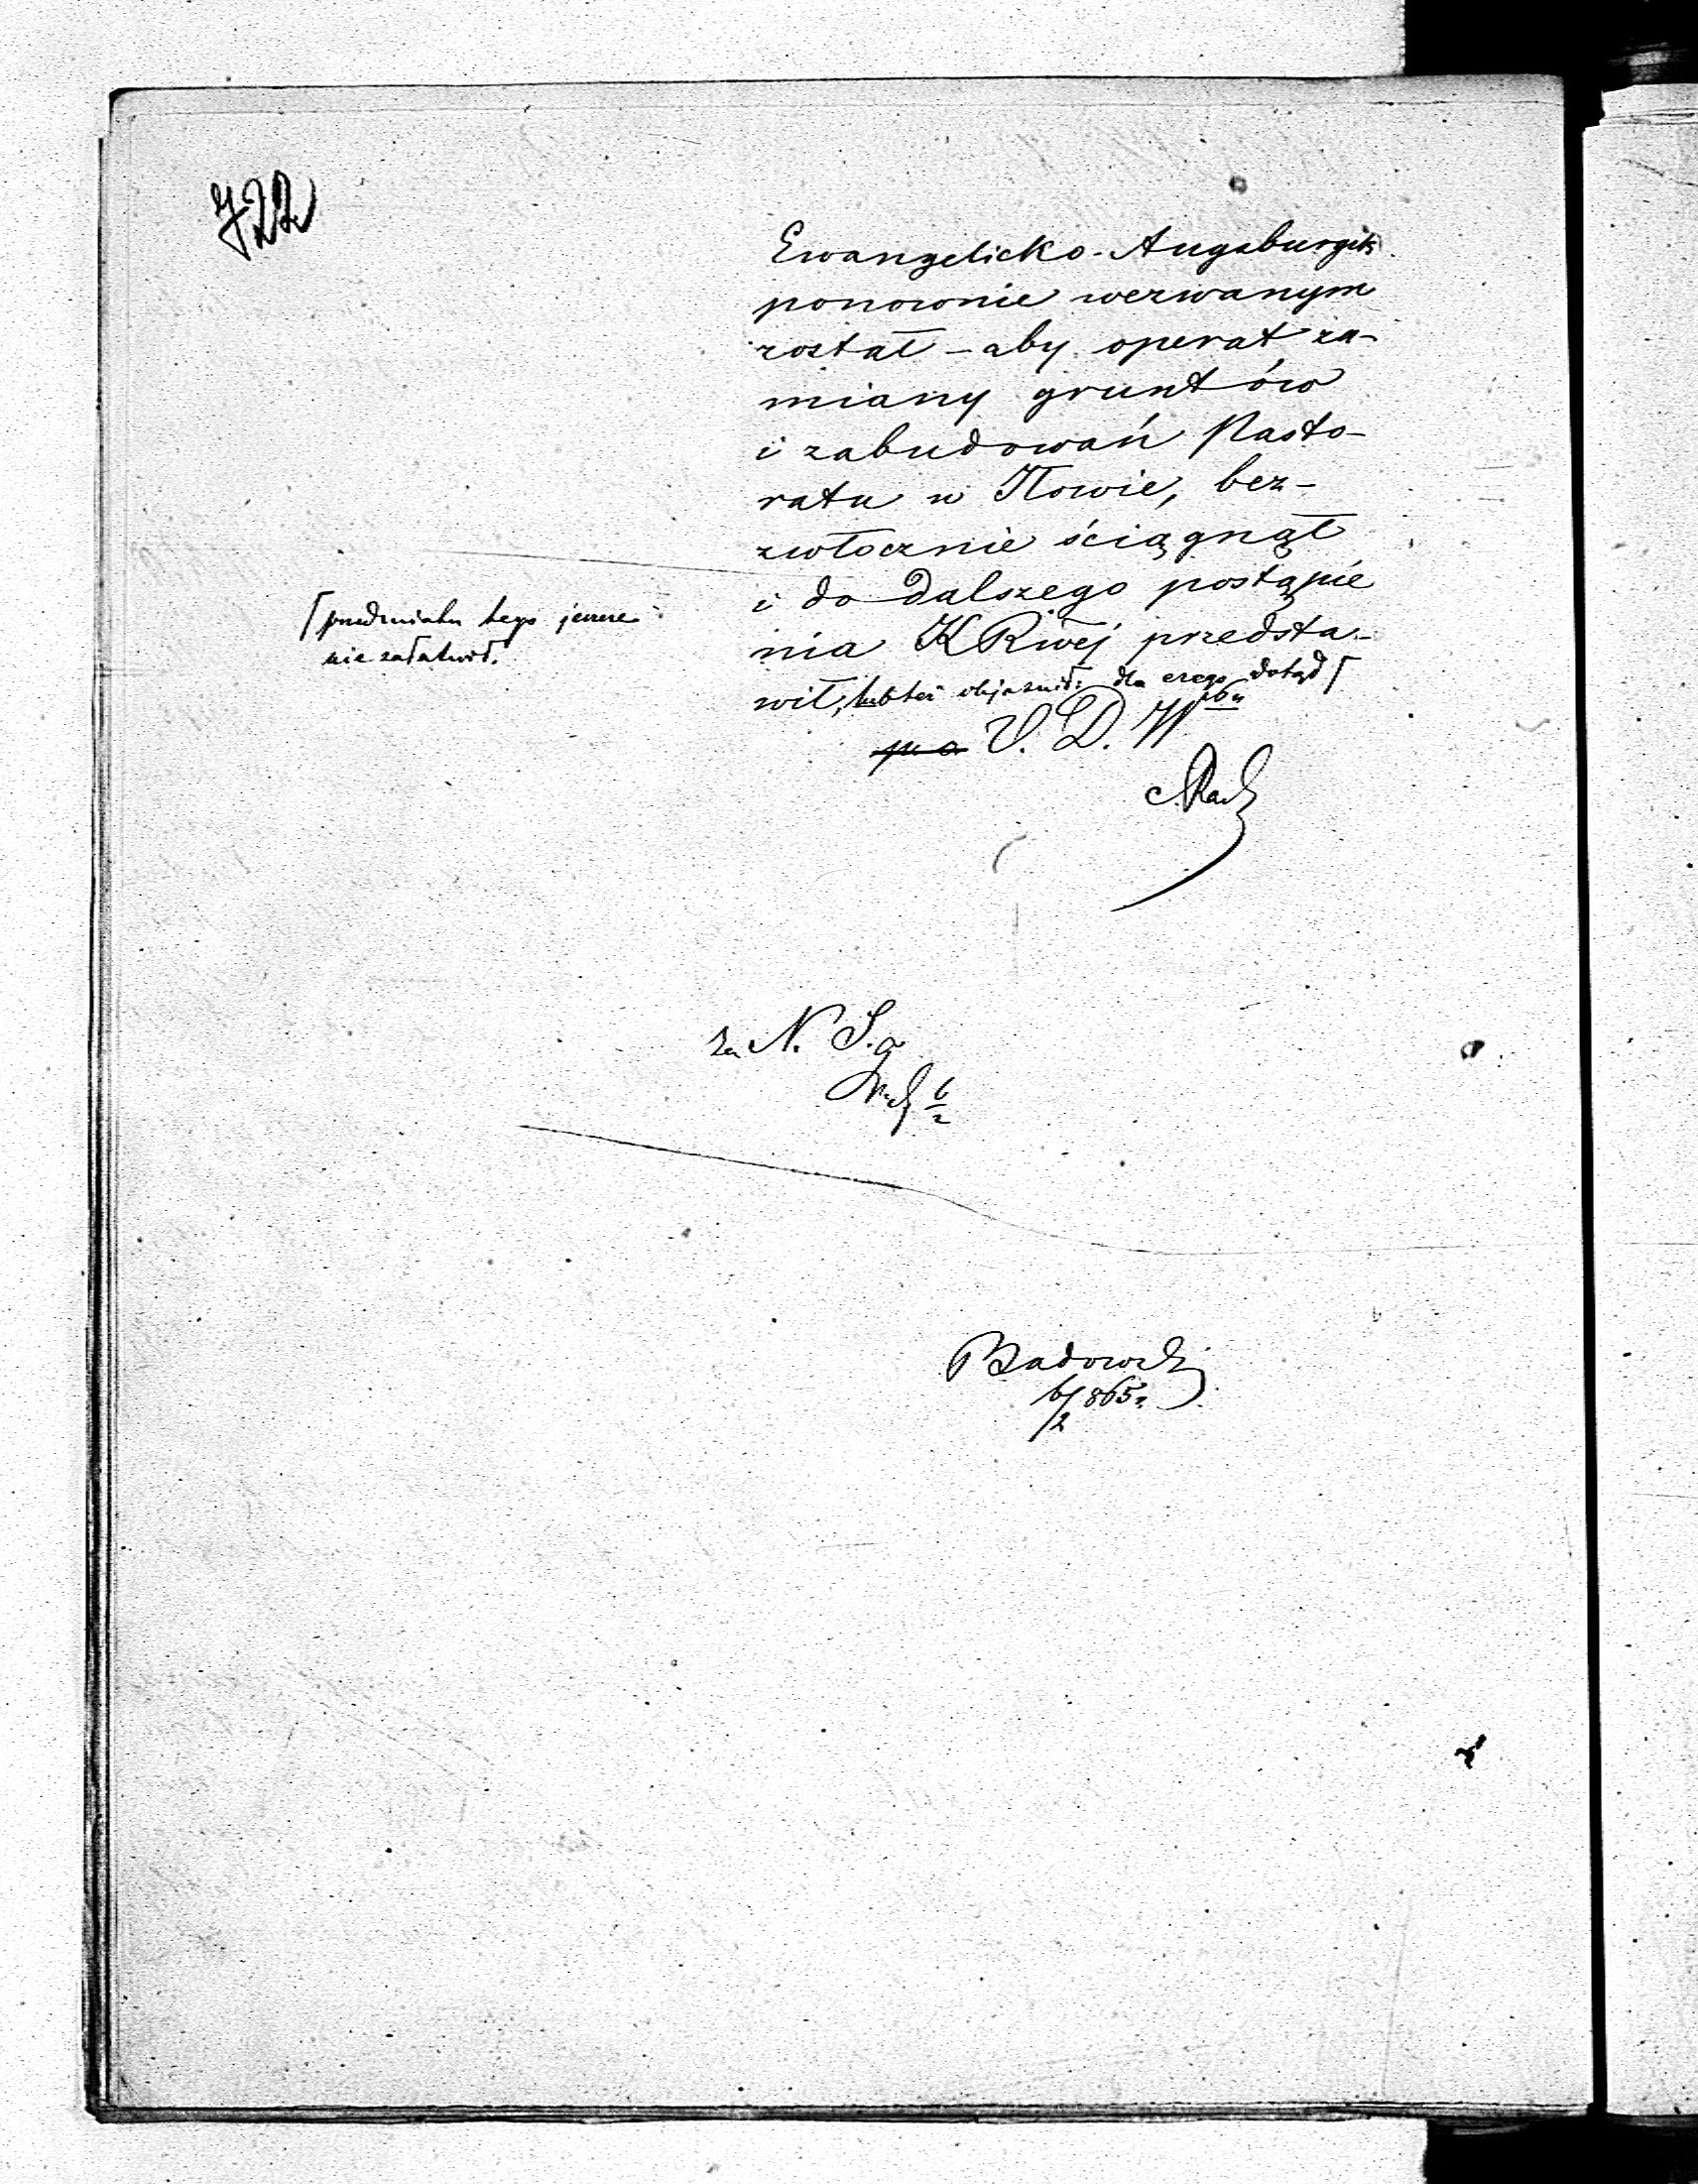 722
Ewangelicko-Augsburgsk
ponownie wezwanym
został – aby operat za-
miany gruntów
i zabudowań Pasto-
ratu w Iłowie, bez-
zwłocznie ściągnął
i do dalszego postąpie
nia KRwej przedsta-
wił, lub też objaśnił: dla czego dotąd ⌈
⌈ przedmiotu tego jeszcze
nie załatwił.
V. D. W
za N. S.
6/2
Badowski
6/2 865 r.